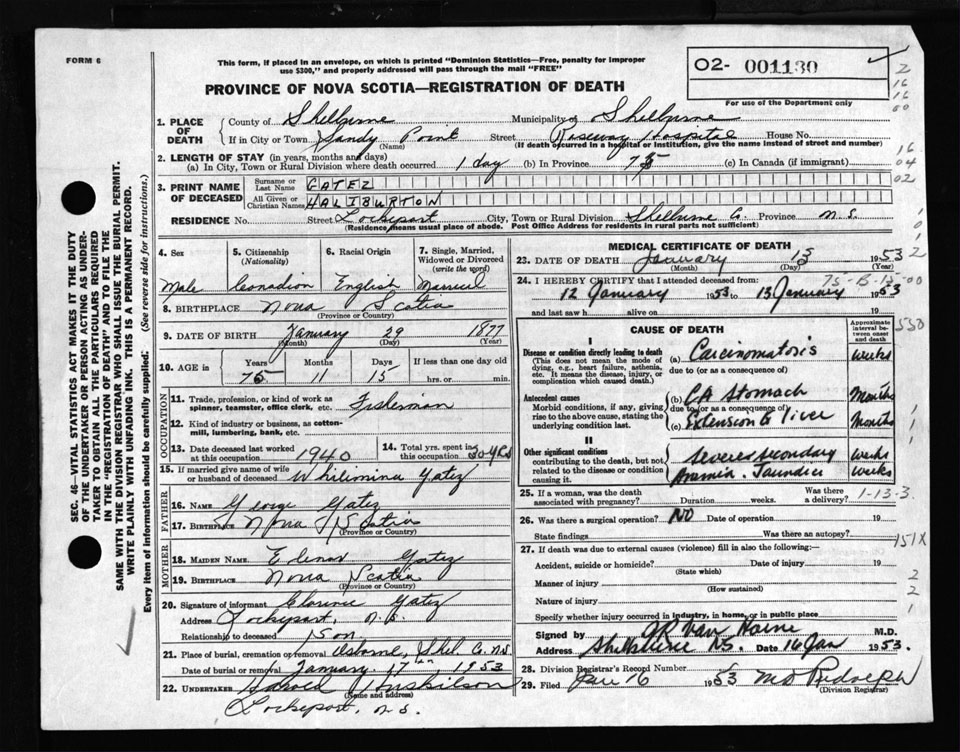 FORM 6
This form, if placed in an envelope, on which is printed "Dominion Statistics—Free, penalty for improper
use $300," and properly addressed will pass through the mail "FREE"
O2- 001130
For use of the Department only
PROVINCE OF NOVA SCOTIA—REGISTRATION OF DEATH
1. PLACE OF DEATH
County of Shelburne Municipality of Shelburne
If in City or Town Sandy Point Street Roseway Hospital House No.
(Name) (If death occurred in a hospital or institution, give the name instead of street and number)
2. LENGTH OF STAY (in years, months and days)
(a) In City, Town or Rural Division where death occurred 1 day (b) In Province 75 (c) In Canada (if immigrant)
3. PRINT NAME OF DECEASED
Surname or Last Name GATEZ
All Given or Christian Names HALIBURTON
RESIDENCE No. Street Lockeport City, Town or Rural Division Shelburne Co. Province N.S.
(Residence means usual place of abode. Post Office Address for residents in rural parts not sufficient)
4. Sex 5. Citizenship (Nationality) 6. Racial Origin 7. Single, Married, Widowed or Divorced (write the word)
Male Canadian English Married
8. BIRTHPLACE Nova Scotia
(Province or Country)
9. DATE OF BIRTH January 29 1877
(Month) (Day) (Year)
10. AGE in Years Months Days If less than one day old
75 11 15 hrs. or min.
OCCUPATION
11. Trade, profession, or kind of work as
spinner, teamster, office clerk, etc. Fisherman
12. Kind of industry or business, as cotton-
mill, lumbering, bank, etc.
13. Date deceased last worked at this occupation 1940 14. Total yrs. spent in this occupation 50 yrs
15. If married give name of wife or husband of deceased Whilimina Gatez
FATHER
16. NAME George Gatez
17. BIRTHPLACE Nova Scotia
(Province or Country)
MOTHER
18. MAIDEN NAME Elenor Gatez
19. BIRTHPLACE Nova Scotia
(Province or Country)
20. Signature of informant Clarence Gatez
Address Lockeport, N.S.
Relationship to deceased Son
21. Place of burial, cremation or removal Osborne, Shel Co. N.S.
Date of burial or removal January 17th 1953
22. UNDERTAKER Harold Huskilson
(Name and address)
Lockeport, N.S.
MEDICAL CERTIFICATE OF DEATH
23. DATE OF DEATH January 13 1953
(Month) (Day) (Year)
24. I HEREBY CERTIFY that I attended deceased from:
12 January 1953 to 13 January 1953
and last saw h alive on 19
CAUSE OF DEATH
Approximate interval between onset and death
I
Disease or condition directly leading to death
(This does not mean the mode of
dying, e.g., heart failure, asthenia,
etc. It means the disease, injury, or
complication which caused death.)
(a) Carcinomatosis weeks
due to (or as a consequence of)
Antecedent causes
Morbid conditions, if any, giving
rise to the above cause, stating the
underlying condition last.
(b) CA Stomach Months
due to (or as a consequence of)
(c) Extension to liver Months
II
Other significant conditions
contributing to the death, but not
related to the disease or condition
causing it.
Severe secondary weeks
Anemia. Jaundice weeks
25. If a woman, was the death
associated with pregnancy? Duration weeks. Was there a delivery? 1-13-3
26. Was there a surgical operation? NO Date of operation 19
State findings Was there an autopsy?
151X
27. If death was due to external causes (violence) fill in also the following:—
Accident, suicide or homicide? Date of injury 19
(State which)
Manner of injury
(How sustained)
Nature of injury
Specify whether injury occurred in industry, in home, or in public place
Signed by Van Horne M.D.
Address Shelburne NS. Date 16 Jan 1953.
28. Division Registrar's Record Number
29. Filed Jan 16 1953 Rudolph
(Division Registrar)
SEC. 46—VITAL STATISTICS ACT MAKES IT THE DUTY
OF THE UNDERTAKER OR PERSON ACTING AS UNDER-
TAKER TO OBTAIN ALL THE PARTICULARS REQUIRED
IN THE "REGISTRATION OF DEATH" AND TO FILE THE
SAME WITH THE DIVISION REGISTRAR WHO SHALL ISSUE THE BURIAL PERMIT.
WRITE PLAINLY WITH UNFADING INK. THIS IS A PERMANENT RECORD.
Every item of information should be carefully supplied. (See reverse side for instructions.)